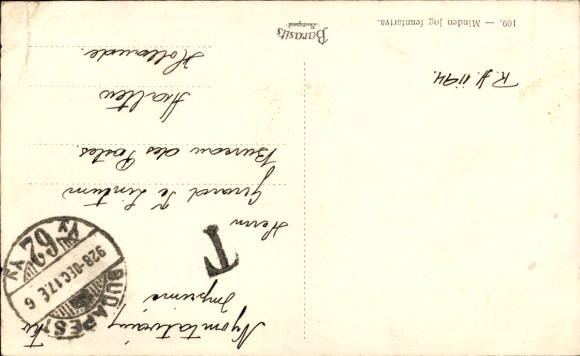 Nyomtatvány
Imprimé
T
BUDAPEST
928-DEC.17.E 6
62
Herrn
Girard Te Lintum
Bureau des Postes.
Haltew
Hollande.
Barasits
Budapest
109. — Minden jog fenntartva.
R.J. 1194.